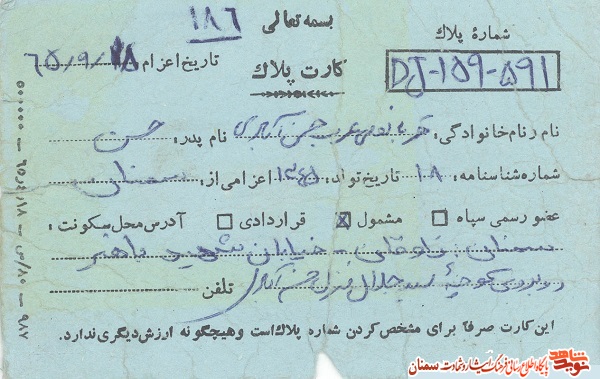 بسمه تعالی ۱۸۶
شمارهٔ پلاك
DJ-۱۵۹-۵۹۱
کارت پلاك
تاریخ اعزام ۶۵/۹/۱۸
نام و نام خانوادگی: قربانعلی عرب حسن آبادی نام پدر: حسن
شماره شناسنامه: ۱۸ تاریخ تولد: ۱۳۴۵ اعزامی از: سمنان
عضو رسمی سپاه مشمول قراردادی آدرس محل سکونت:
سمنان - خیابان شهید باهنر
روبروی کوچهٔ سید جلال تلفن
این کارت صرفاً برای مشخص کردن شماره پلاك است و هیچگونه ارزش دیگری ندارد.
۵۰۰۰۰۰ — ۶۵/۴/۱۸ — س/۸۰ — ۹۸۷
نوید شاهد
پایگاه اطلاع رسانی فرهنگ ایثار و شهادت سمنان